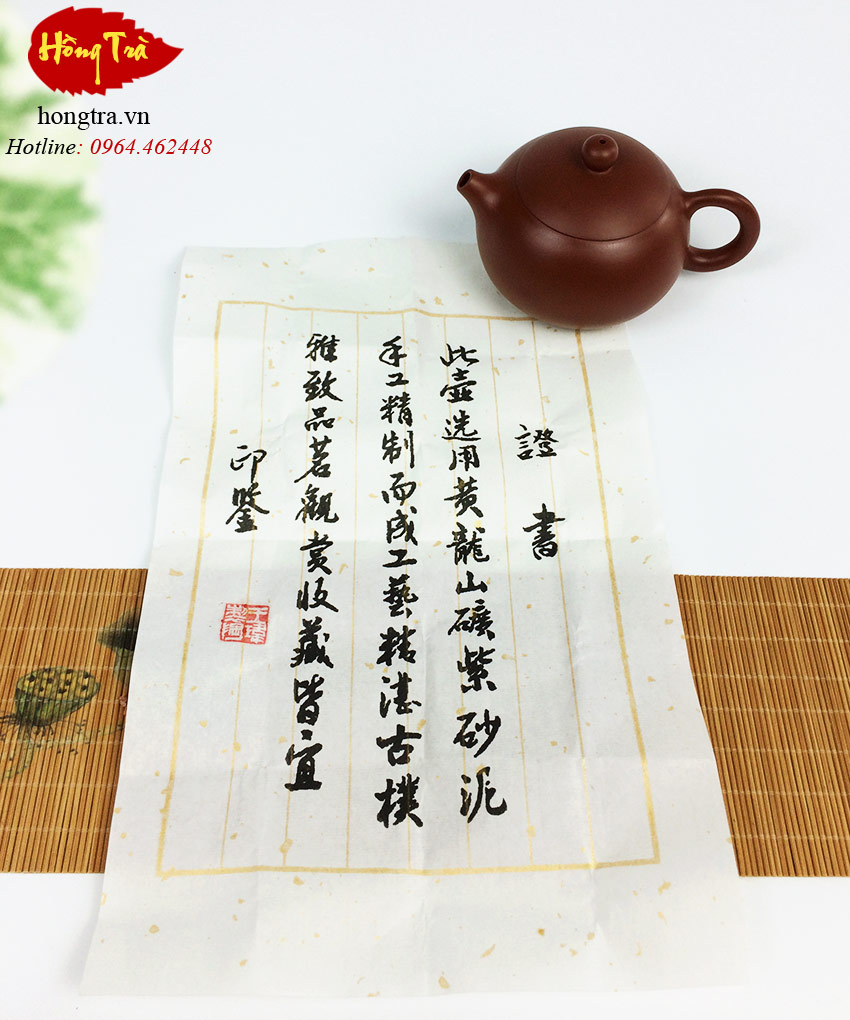 Hồng Trà
hongtra.vn
Hotline: 0964.462448
證書
此壺选用黄龍山礦紫砂泥
手工精制而成工藝精湛古樸
雅致品茗觀赏收藏皆宜
印鑒